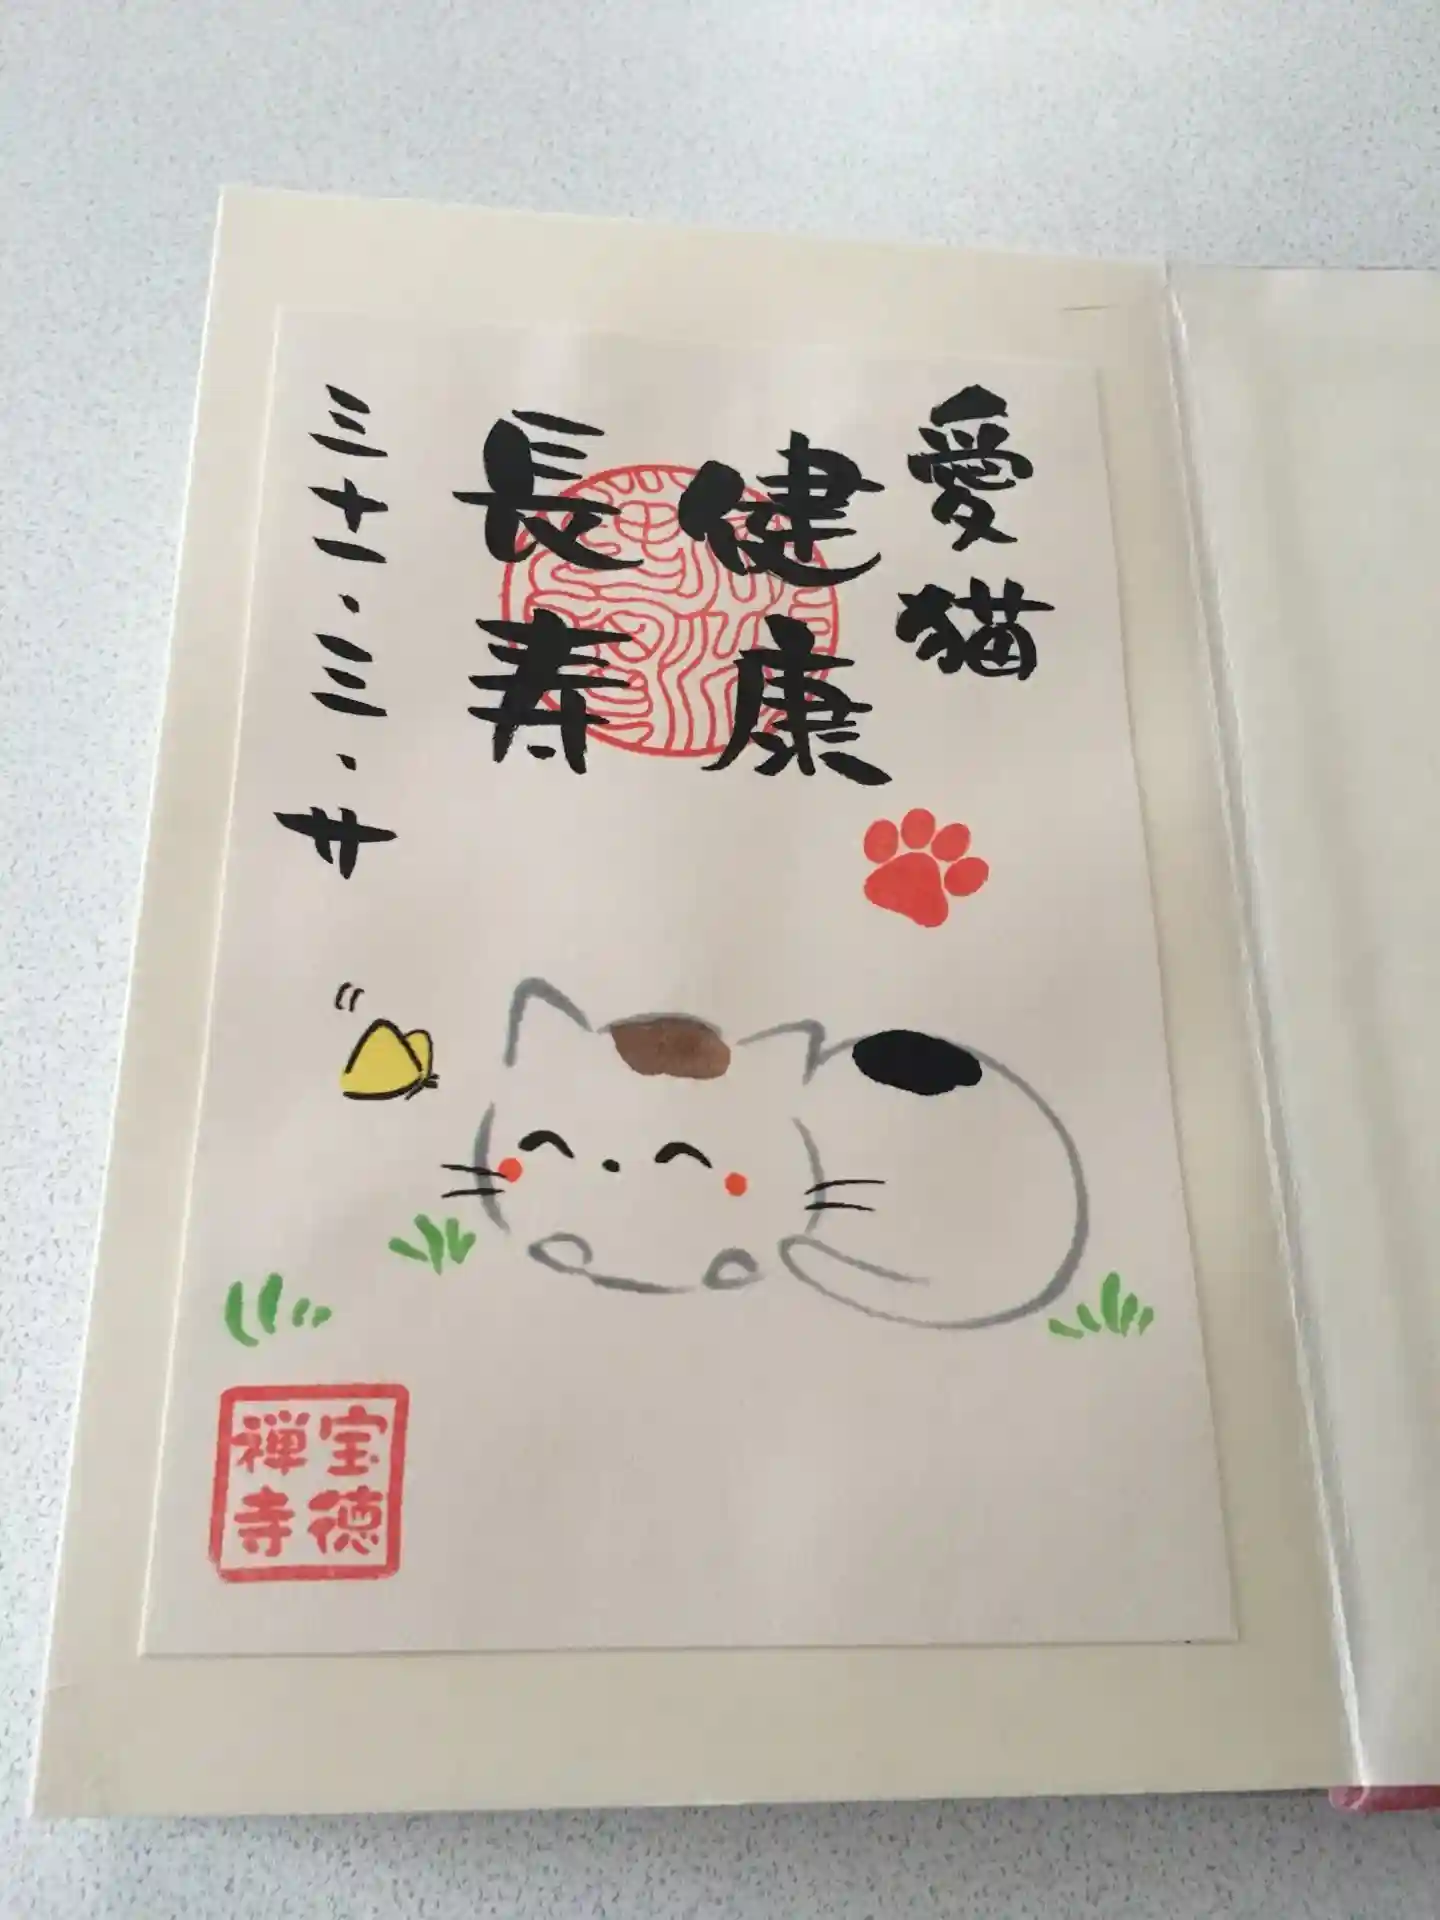 愛猫
健康
長寿
三十一・三・卄
宝徳
禅寺